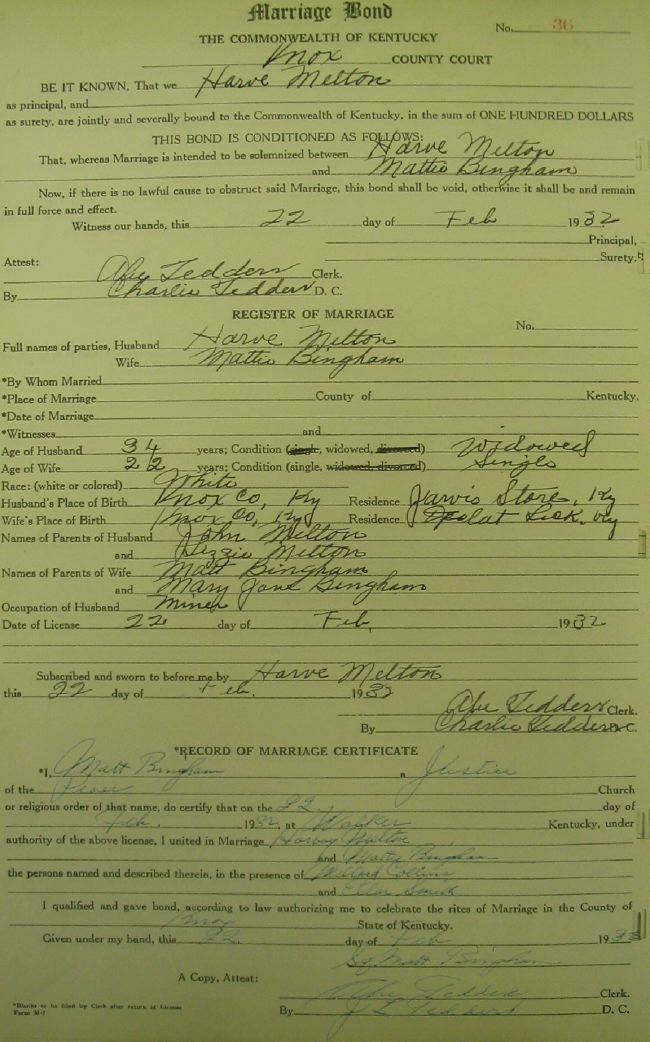 Marriage Bond
No. 36
THE COMMONWEALTH OF KENTUCKY
Knox COUNTY COURT
BE IT KNOWN, That we Harve Melton
as principal, and
as surety, are jointly and severally bound to the Commonwealth of Kentucky, in the sum of ONE HUNDRED DOLLARS
THIS BOND IS CONDITIONED AS FOLLOWS:
That, whereas Marriage is intended to be solemnized between Harve Melton
and Mattie Bingham
Now, if there is no lawful cause to obstruct said Marriage, this bond shall be void, otherwise it shall be and remain
in full force and effect.
Witness our hands, this 22 day of Feb 1932
Principal,
Surety.
Attest:
Abe Tedders Clerk.
By Charlie Tedders D. C.
REGISTER OF MARRIAGE
No.
Full names of parties, Husband Harve Melton
Wife Mattie Bingham
*By Whom Married
*Place of Marriage County of Kentucky.
*Date of Marriage
*Witnesses and
Age of Husband 34 years; Condition (single, widowed, divorced) Widowed
Age of Wife 22 years; Condition (single, widowed, divorced) Single
Race: (white or colored) White
Husband's Place of Birth Knox Co, Ky Residence Jarvis Store, Ky
Wife's Place of Birth Knox Co, Ky Residence Flat Lick, Ky
Names of Parents of Husband John Melton
and Lizzie Melton
Names of Parents of Wife Matt Bingham
and Mary Jane Bingham
Occupation of Husband Miner
Date of License 22 day of Feb, 1932
Subscribed and sworn to before me by Harve Melton
this 22 day of Feb. 1932
Abe Tedders Clerk.
By Charlie Tedders D.C.
*RECORD OF MARRIAGE CERTIFICATE
*I, Matt Bingham a Justice
of the Peace Church
or religious order of that name, do certify that on the 22, day of
Feb. 1932, at Walker Kentucky, under
authority of the above license, I united in Marriage Harvey Melton
and Mattie Bingham
the persons named and described therein, in the presence of Collins
and Smith
I qualified and gave bond, according to law authorizing me to celebrate the rites of Marriage in the County of
Knox State of Kentucky.
Given under my hand, this 22 day of Feb 1932
Matt Bingham
A Copy, Attest:
Abe Tedders Clerk.
By Tedders D. C.
*Blanks to be filed by Clerk after return of License
Form M-7